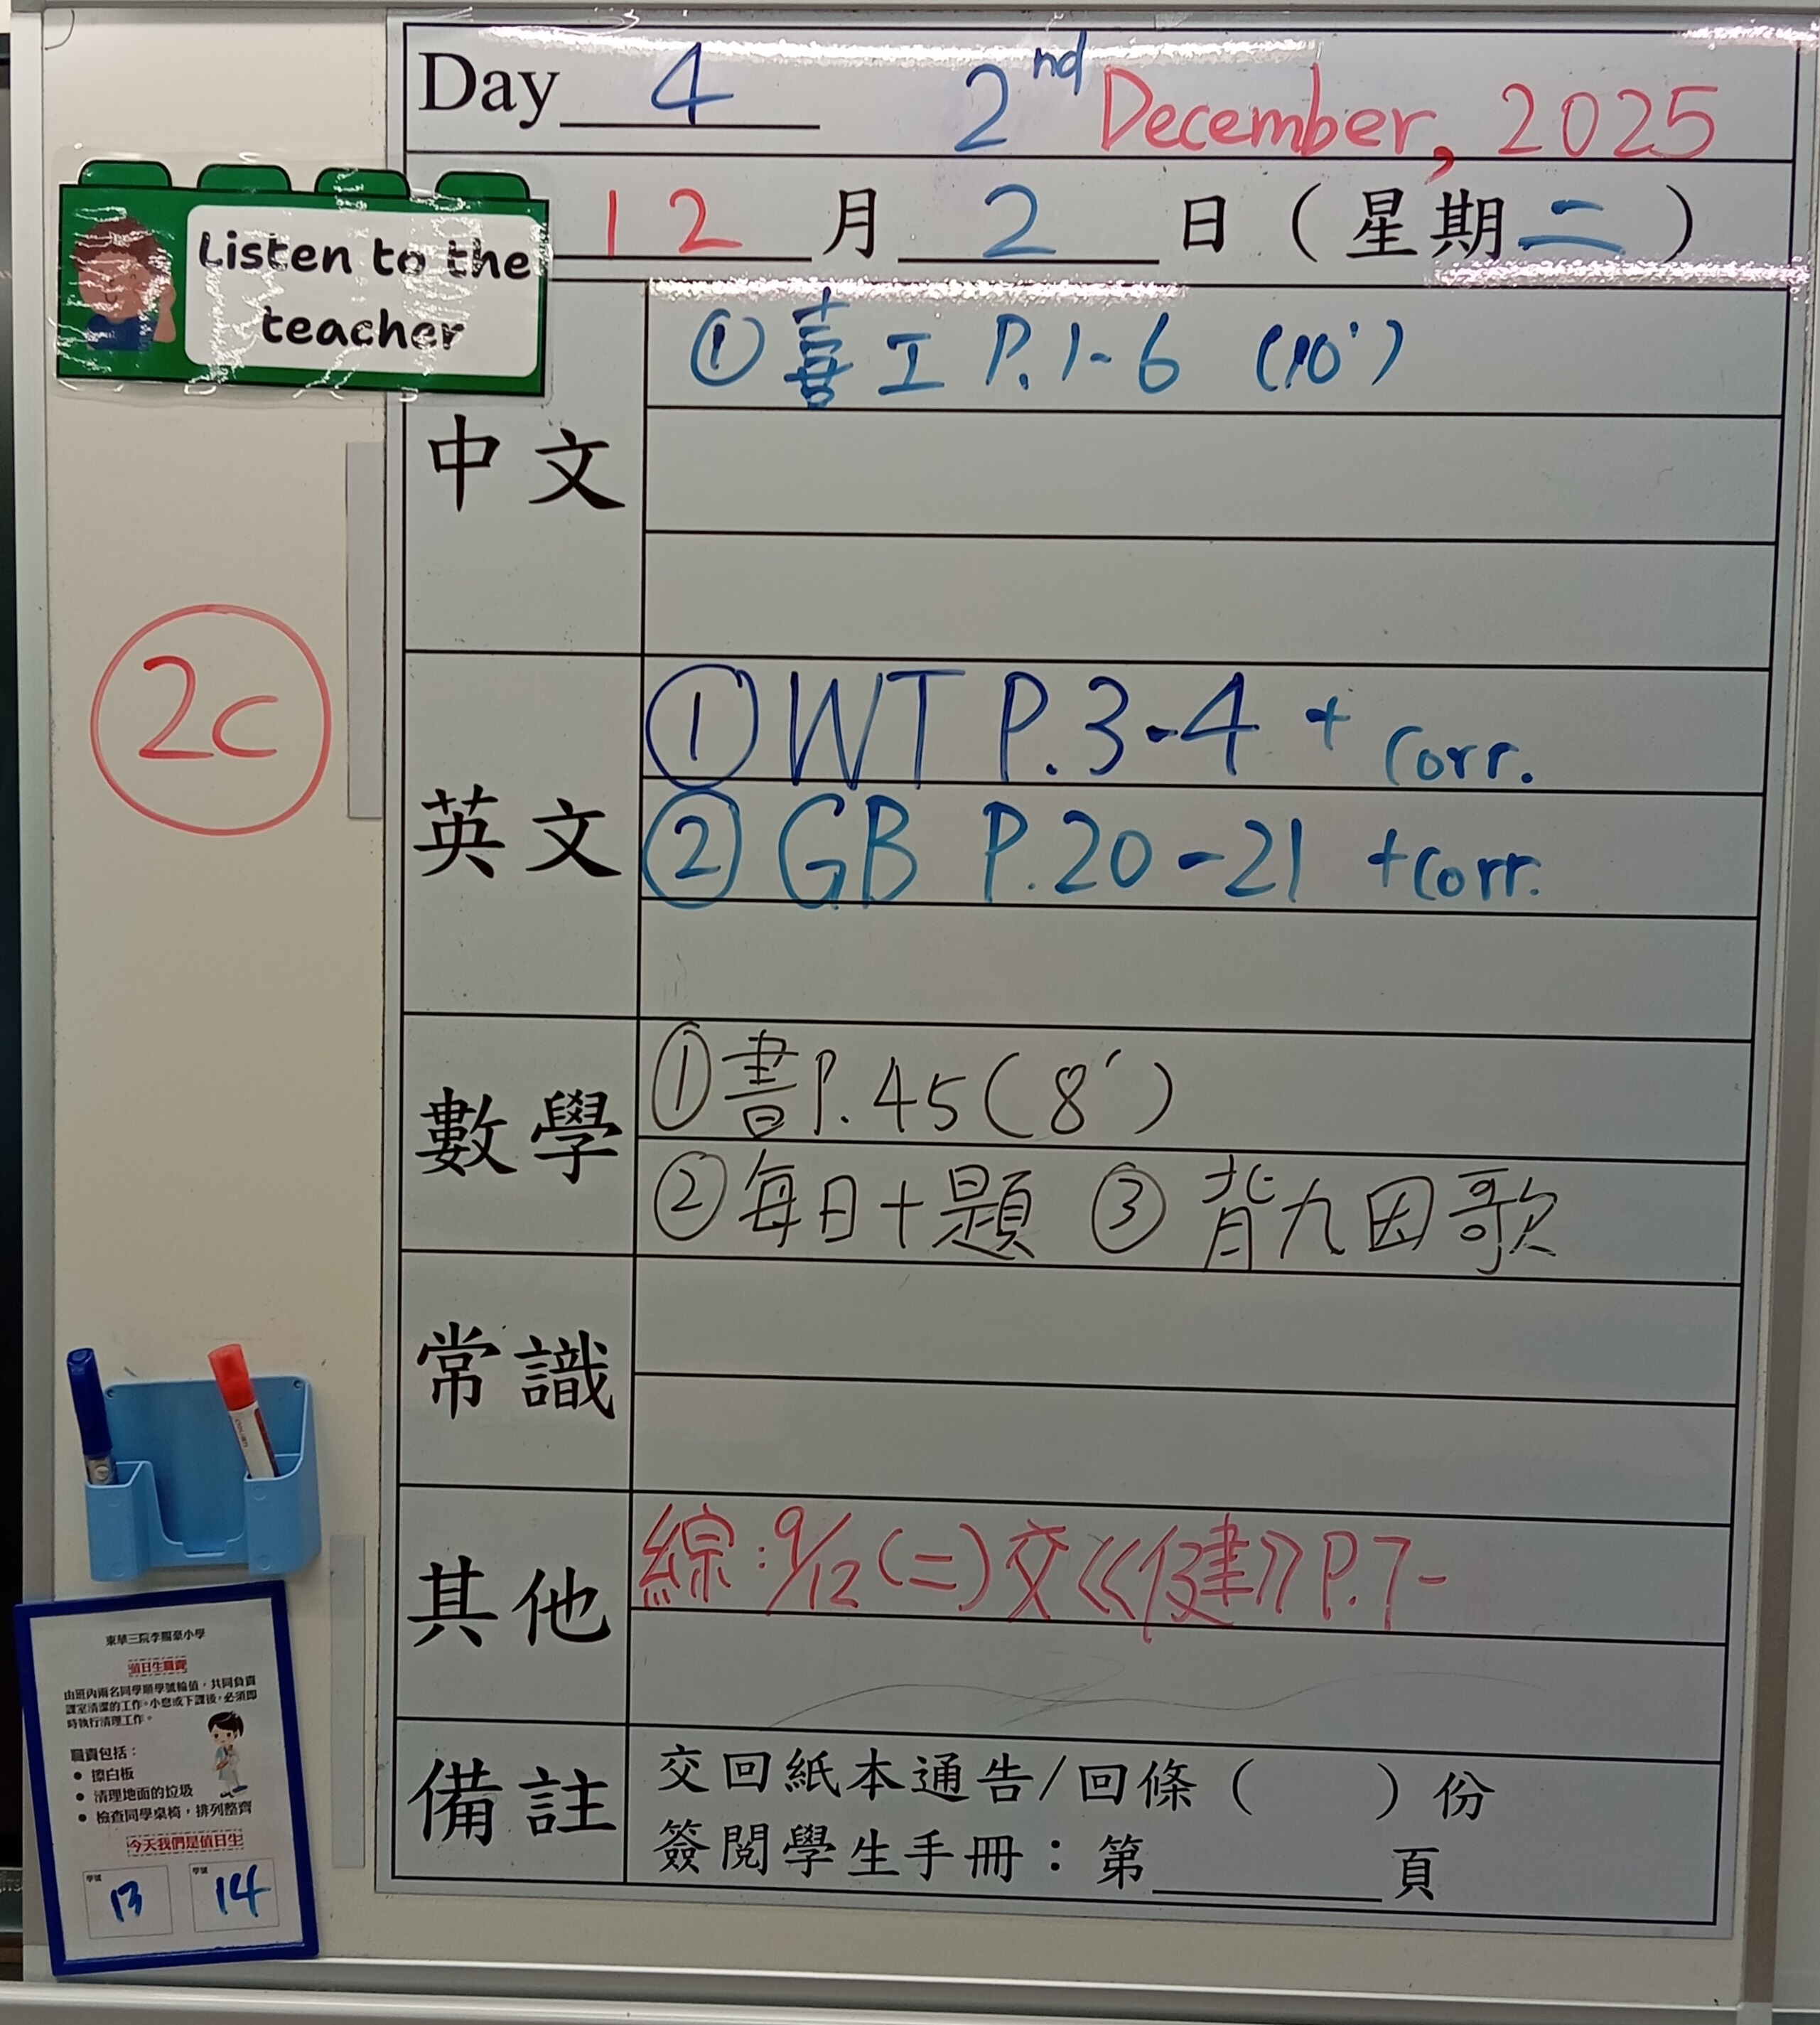 Day 4 2nd December, 2025
12 月 2 日（星期二）
Listen to the
teacher
中文
① 喜工 P.1-6 (10')
2C
英文
① WT P.3-4 + Corr.
② GB P.20-21 + Corr.
數學
① 書P.45(8')
② 每日十題 ③ 背九因歌
常識
其他
綜:9/12(二)交《健》P.7-
備註
交回紙本通告/回條（ ）份
簽閱學生手冊：第 頁
東華三院李賜豪小學
值日生職責
由班內兩名同學順學號輪值，共同負責
課室清潔的工作。小息或下課後，必須即
時執行清理工作。
職責包括：
• 擦白板
• 清理地面的垃圾
• 檢查同學桌椅，排列整齊
今天我們是值日生
學號 13 學號 14